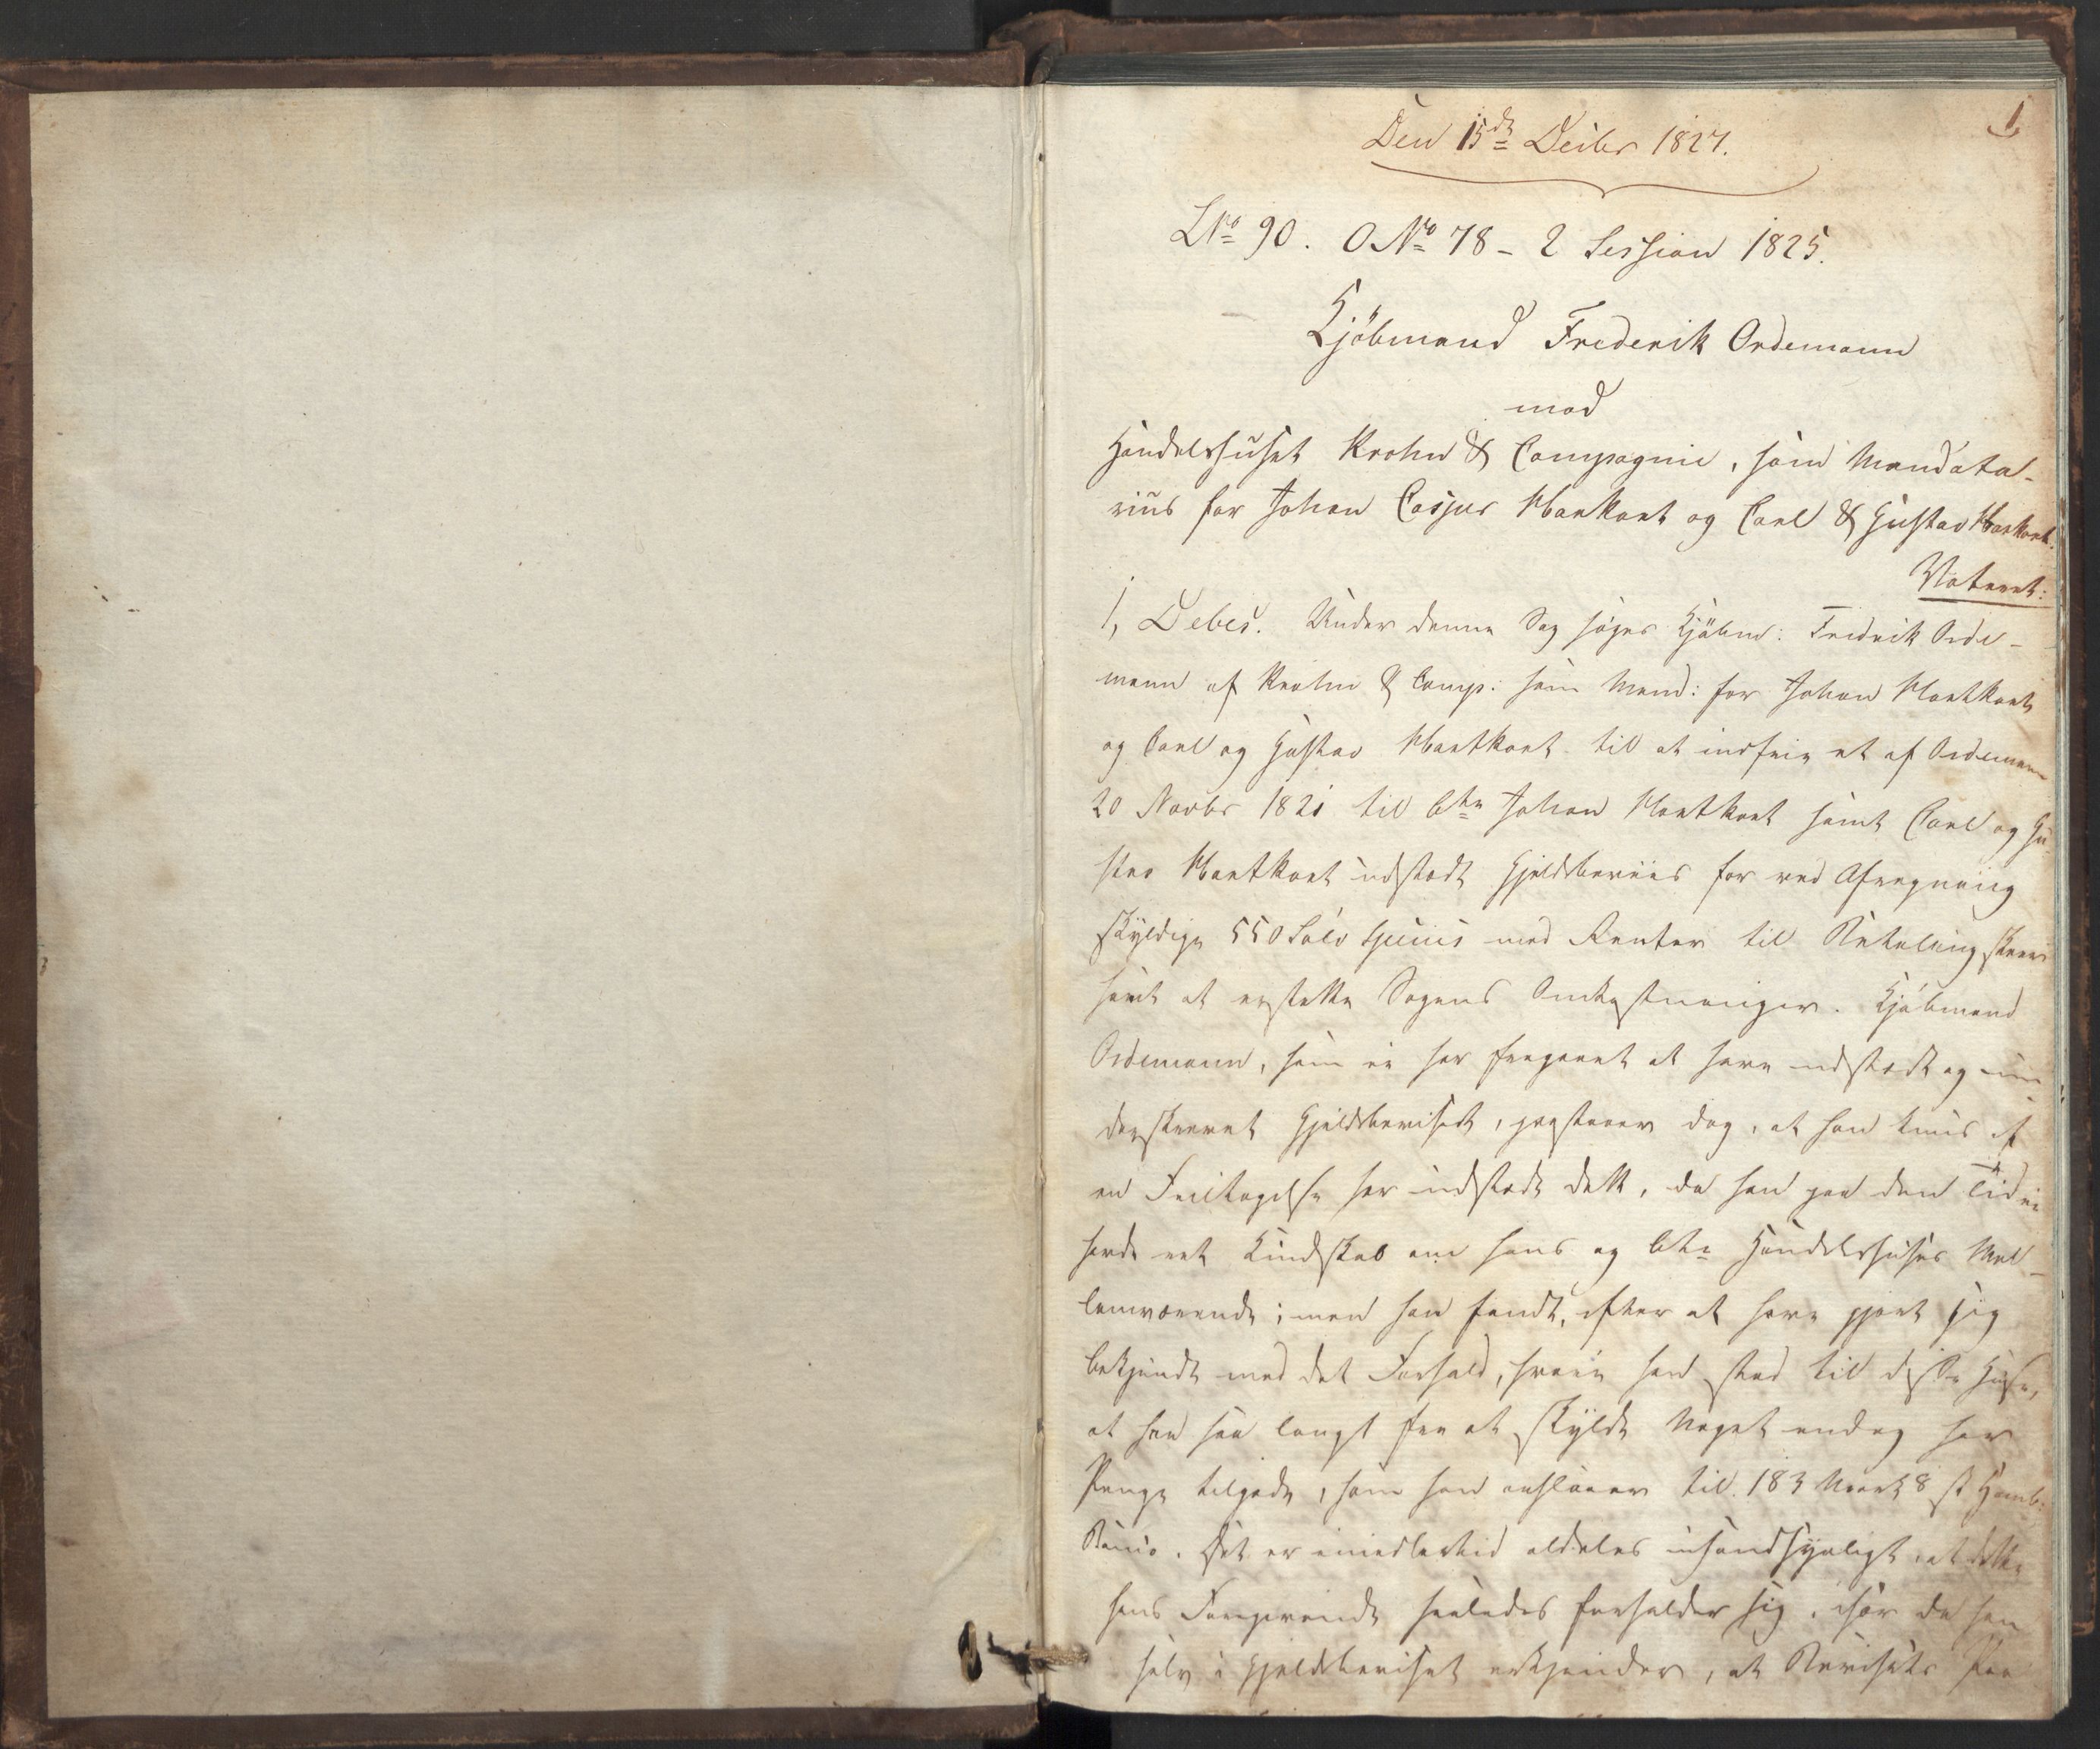 1
Den 15de Decbr 1827.
LNo 90. ONo 78 - 2 Session 1825.
Kjöbmand Frederik Ordemann
mod
Handelshuset Krohn & Compagnie, som Mandata-
rius for Johan Casper Harkort og Carl & Gustav Harkort.
Voteret:
1, Debes. Under denne Sag søges Kjøbm: Fredrik Orde-
mann af Krohn & Comp: som Mand: for Johan Hartkort
og Carl og Gustav Hartkort til at indfrie et af Ordemann
20 Novbr 1821 til bte Johan Hartkort samt Carl og Gu-
stav Hartkort udstædt Gjeldsbeviis for ved Afregning
skyldige 550 Sølv Species med Renter til Betaling skeer
samt at erstatte Sagens Omkostninger. Kjøbmand
Ordemann, som ei har fragaaet at have udstædt og un-
derskrevet Gjeldsbeviset, paastaaer dog, at han kuns af
en Feiltagelse har udstædt dette, da han paa den Tid ei
havde ret Kundskab om hans og bte Handelshuses Mel-
lemværende; men han fandt, efter at have gjort sig
bekjendt med det Forhold, hvori han stod til disse Huse,
at han saa langt fra at skylde Noget endog har
Penge tilgode, som han anslaaer til 183 Mark 8 s Hamb:
Banco. Det er imidlertid aldeles usandsynligt, at dette
hans Foregivende saaledes forholder sig, især da han
selv i Gjeldsbeviset erkjender, at Bevisets